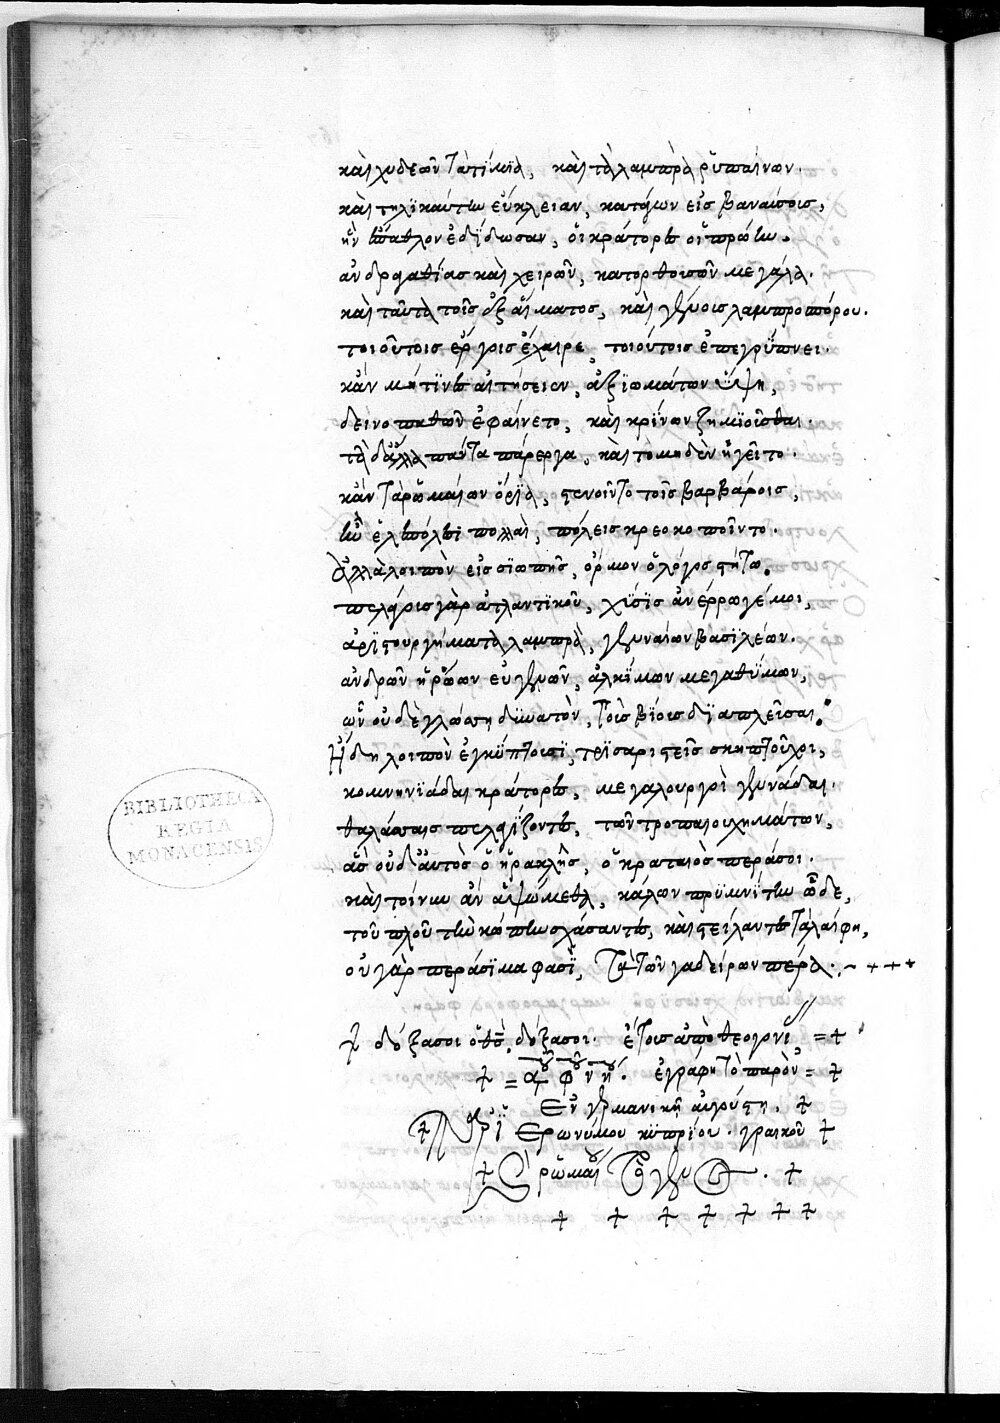 καὶ χυδεῶν τὰ τίμια, καὶ τὰ λαμπρὰ ῥυπαίνων.
καὶ τηλικαύτην εὔκλειαν, κατάγων εἰς βαναύσοις,
ἣν ἔπαθλον ἐδίδωσαν, οἱ κράτορες οἱ πρώην.
ἀνδραγαθίας καὶ χειρῶν, κατορθοισῶν μεγάλα.
καὶ ταῦτα τοῖς ἐξ αἵματος, καὶ γένοις λαμπροσπόρου.
τοιούτοις ἔργοις ἔχαιρε, τοιούτοις ἐπεγρύπνει.
κἂν μή τινες αἰτήσειαν, ἀξιωμάτων ὕψη,
δεινοπαθῶν ἐφαίνετο, καὶ κρίνων ζημιοῖσθαι.
τὰ δ' ἄλλα πάντα πάρεργα, καὶ τὸ μηδὲν ἡγεῖτο.
κἂν τὰ ῥωμαίων ὅρια, στενοῖντο τοῖς βαρβάροις,
πολλαὶ, πόλεις κρεοκοποῖντο.
ἀλλὰ λοιπὸν εἰς σιωπῆς, ὅρμον ὁ λόγος στήτω.
πελάγοις γὰρ ἀτλαντικοῦ, χύσις ἀνερρωγέμοι,
ἀριστουργήματα λαμπρὰ, γενναίων βασιλέων.
ἀνδρῶν ἡρώων εὐγενῶν, ἀλκίμων μεγαθύμων,
ὧν οὐδὲ γλώσση δυνατὸν, τοὺς βίους διαπλεῦσαι.
Ἤδη λοιπὸν ἐγκύπτουσι, τρισαριστεῖς σκηπτοῦχοι,
κομνηνιάδαι κράτορες, μεγαλουργοὶ γεννάδαι.
θαλάσσαις πελαγίζοντες, τῶν τροπαιουχημάτων,
ἃς οὐδ' αὐτὸς ὁ ἡρακλῆς, ὁ κραταιὸς περάσοι.
καὶ τοίνυν ἂν ἁψώμεθα, κάλων πρυμνίτην ὧδε,
τοῦ πλοῦ τὴν κώπην σχάσαντες, καὶ στείλαντες τὰ λαίφη,
οὐ γὰρ περάσιμα φασὶ, τὰ τῶν γαδείρων πέρα. - + + +
+ δόξα σοι ὁ θς, δόξα σοι. ἔτους ἀπὸ θεογονί = +
+ = αφνη. ἐγράφη τὸ παρὸν = +
Ἐν γερμανικῇ αὐγούστῃ. +
+ Ἱερωνύμου κυπρίου. γραικοῦ +
+ ῥωμαί τοῦ γένους. +
+ + + + + + +
BIBLIOTHECA
REGIA
MONACENSIS